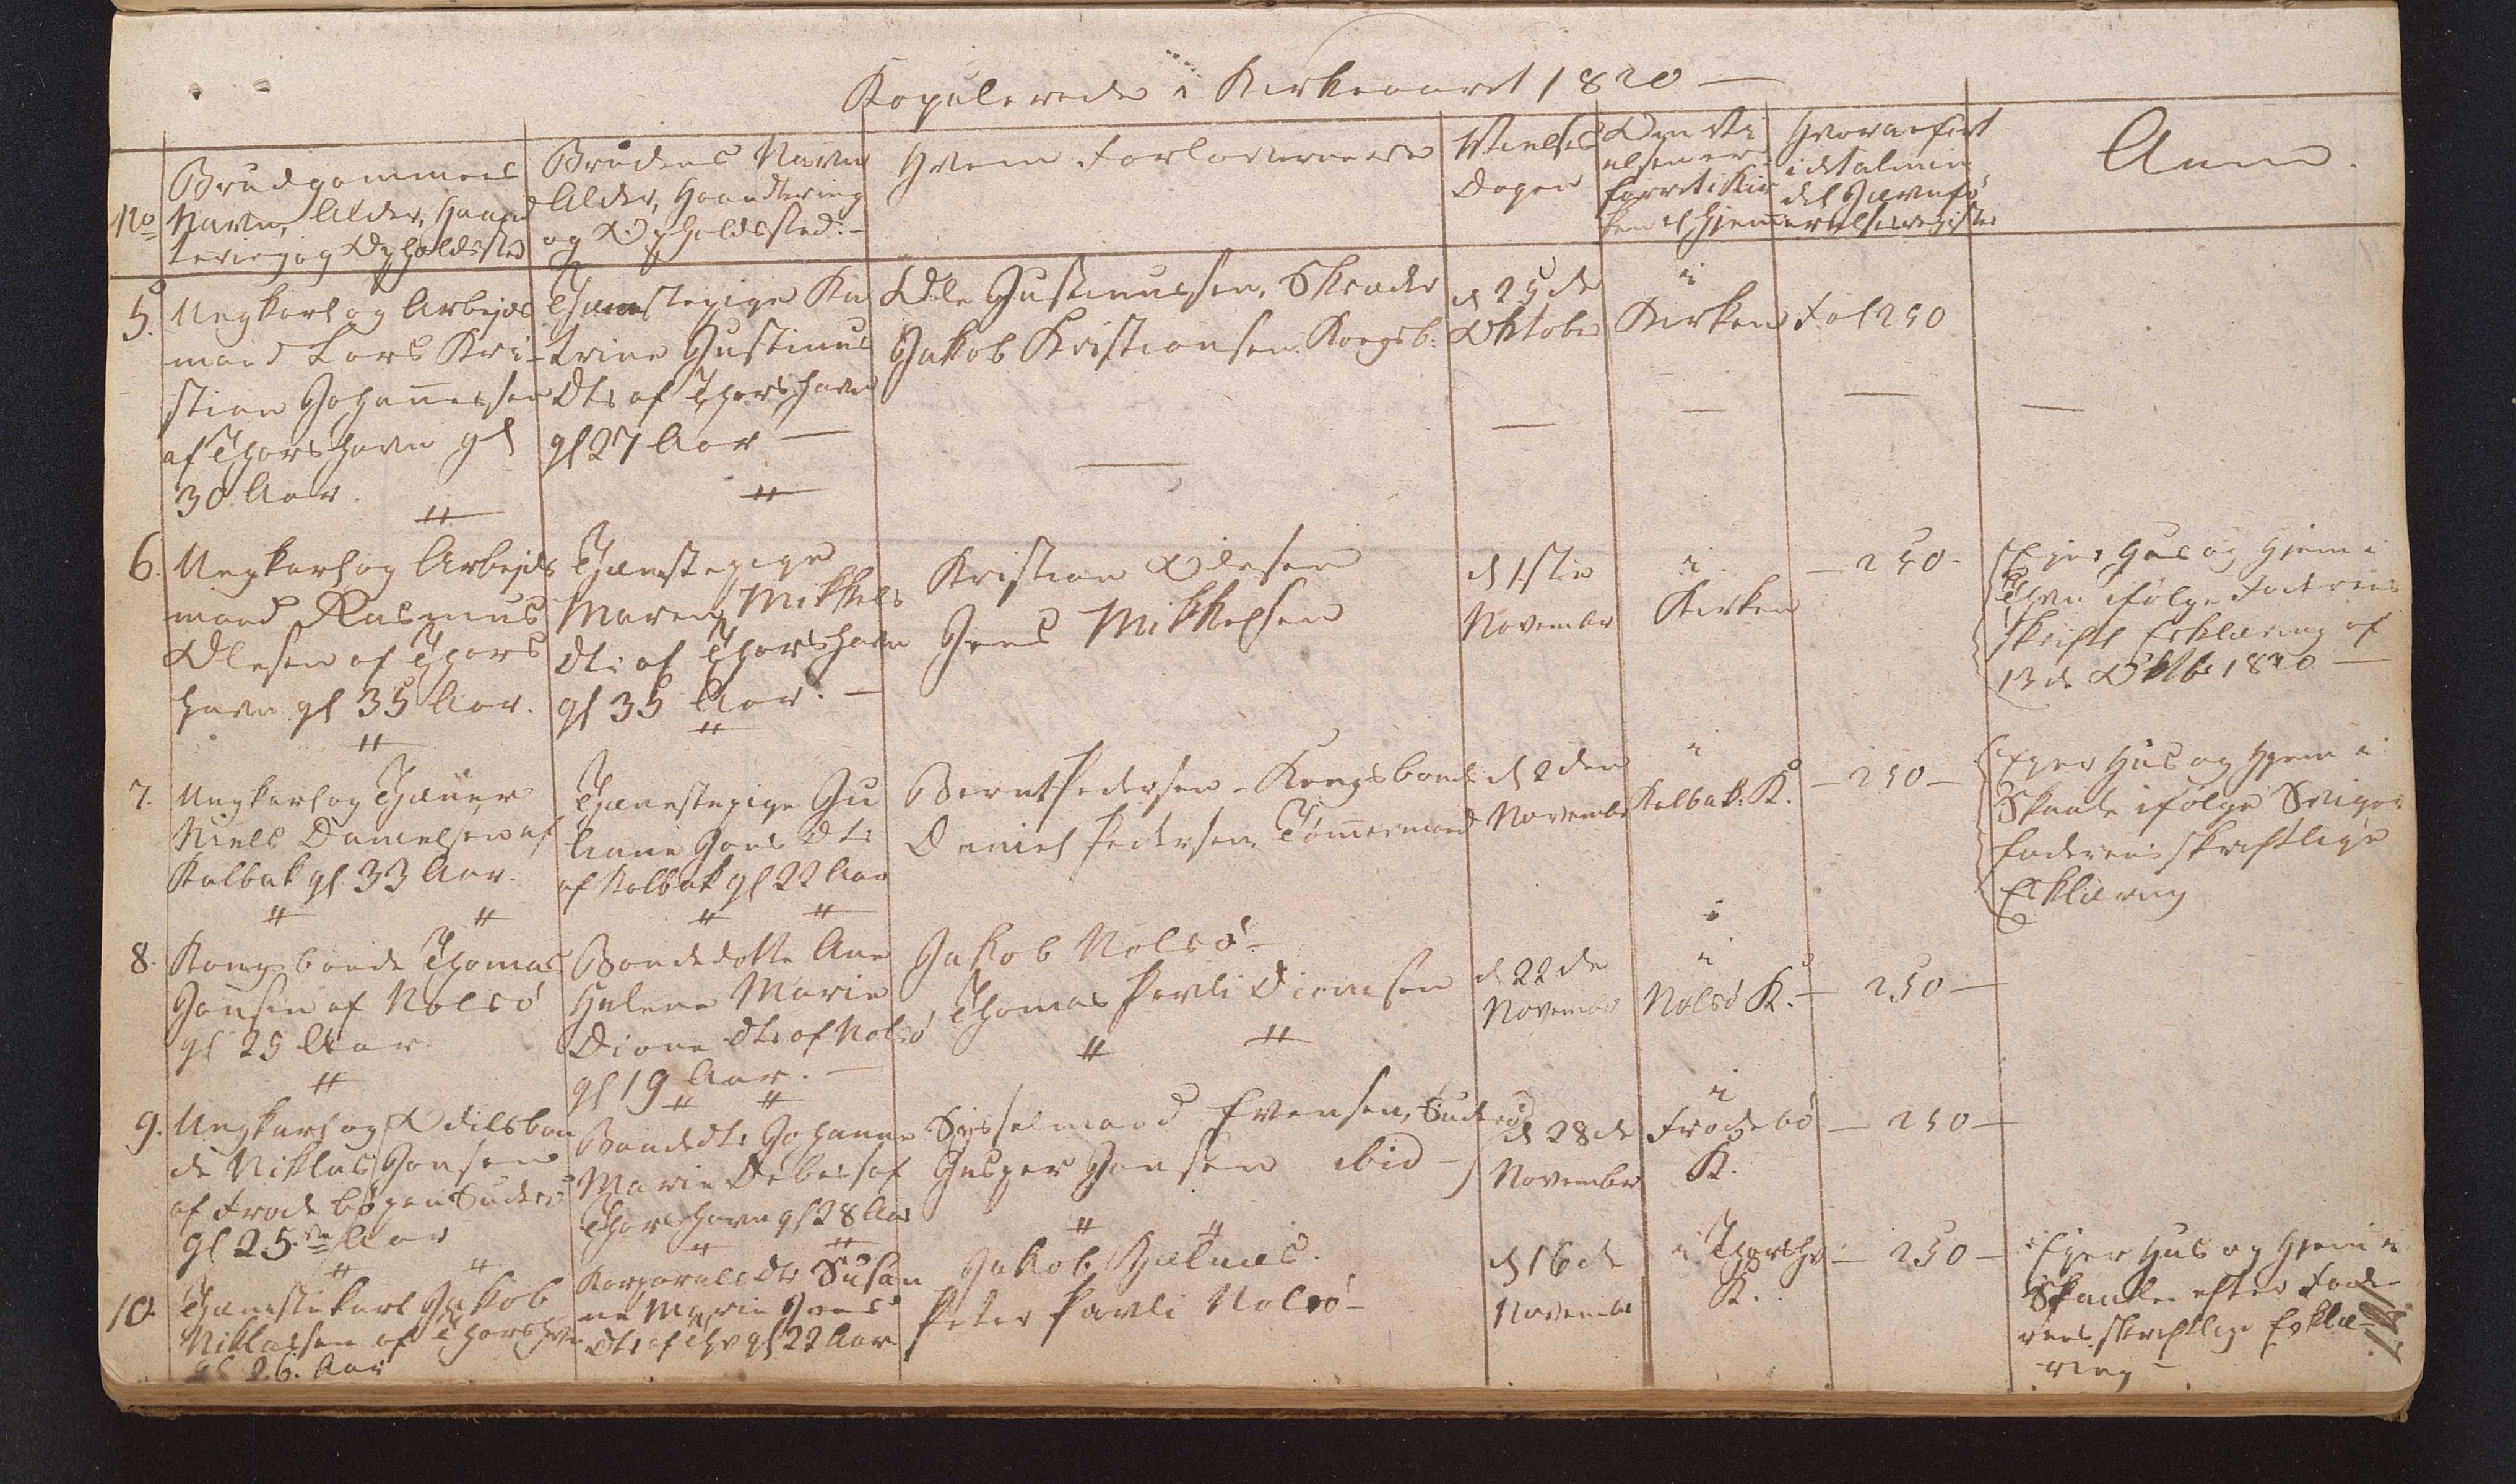 Kopulerede i Kirkeaaret 1820 —
No
Brudgommens
Navn, Alder, Haand
tering og Opholdsted
Brudens Navn
Alder, Haandtering
og Opholdssted. -
Hvem Forloverne ere
Vielses
Dagen
Om Vi
elsen er
forret. i Kir
ken el. Hjem
Hvor anfört
i det almin
del. Jævnfö
relsesregister
Anm.
5.
Ungkarl og Arbejds
mand Lars Kri-
stian Johannessen
af Thorshavn gl
30 Aar.
Tjenestepige Ka
trine Justinus
Dtr af Thorshavn
gl 27 Aar —
Ole Justinussen, Skræder
Jakob Kristiansen Kongsb.
d 25de
Oktober
i
Kirken
Fol 250
6.
Ungkarl og Arbejds
mand Rasmus
Olesen af Thors
havn gl 35 Aar.
Tjenestepige
Maren Mikkels
Dtr af Thorshavn
gl 35 Aar. —
Kristian Olesen
Jens Mikkelsen
d 1ste
November
i
Kirken
— 250 -
Ejer Hus og Hjem i
Thvn ifölge Faderens
skriftl Erklæring af
13de Oktbr 1820 —
7.
Ungkarl og Tjener
Niels Danielsen af
Kalbak gl 33 Aar.
Tjenestepige Ju
liane Joens Dtr
af Kalbak gl 22 Aar
Berent Pedersen - Kongsbonde
Daniel Pedersen Tömmermand
d 2den
Novembr
i
Kalbak. K.
— 250 —
Ejer Hus og Hjem i
Skaale ifölge Sviger
faderens skriftlige
Erklæring
8.
Kongsbonde Thomas
Joensen af Nolsö
gl 25 Aar
Bondedotte Ane
Helene Marie
Dione Dtr af Nolsö
gl 19 Aar. —
Jakob Nolsö -
Thomas Pavli Dionesen
d 22de
November
i
Nolsö K.
— 250 —
9.
Ungkarl og Odelsbon
de Niklas Joensen
af Frodebö paa Suderö
gl 25 Aar
Bondedtr Johanne
Marie Debes af
Thorshavn gl 28 Aar
Sysselmand Evensen, Suderö
Jesper Joensen ibid -
d 28de
November
i
Frodebö
K.
— 250 —
10.
Tjenestekarl Jakob
Niklassen af Thorshvn
gl 26. Aar
Korporalsdtr Susan
ne Marie Joens
Dtr af Thv gl 22 Aar
Jakob
Peter Pavli Nolsö -
d 16de
Novembr
i Thorshv
K.
— 250 —
Ejer Hus og Hjem i
Skaale efter Fade
rens skriftlige Erklæ
ring -